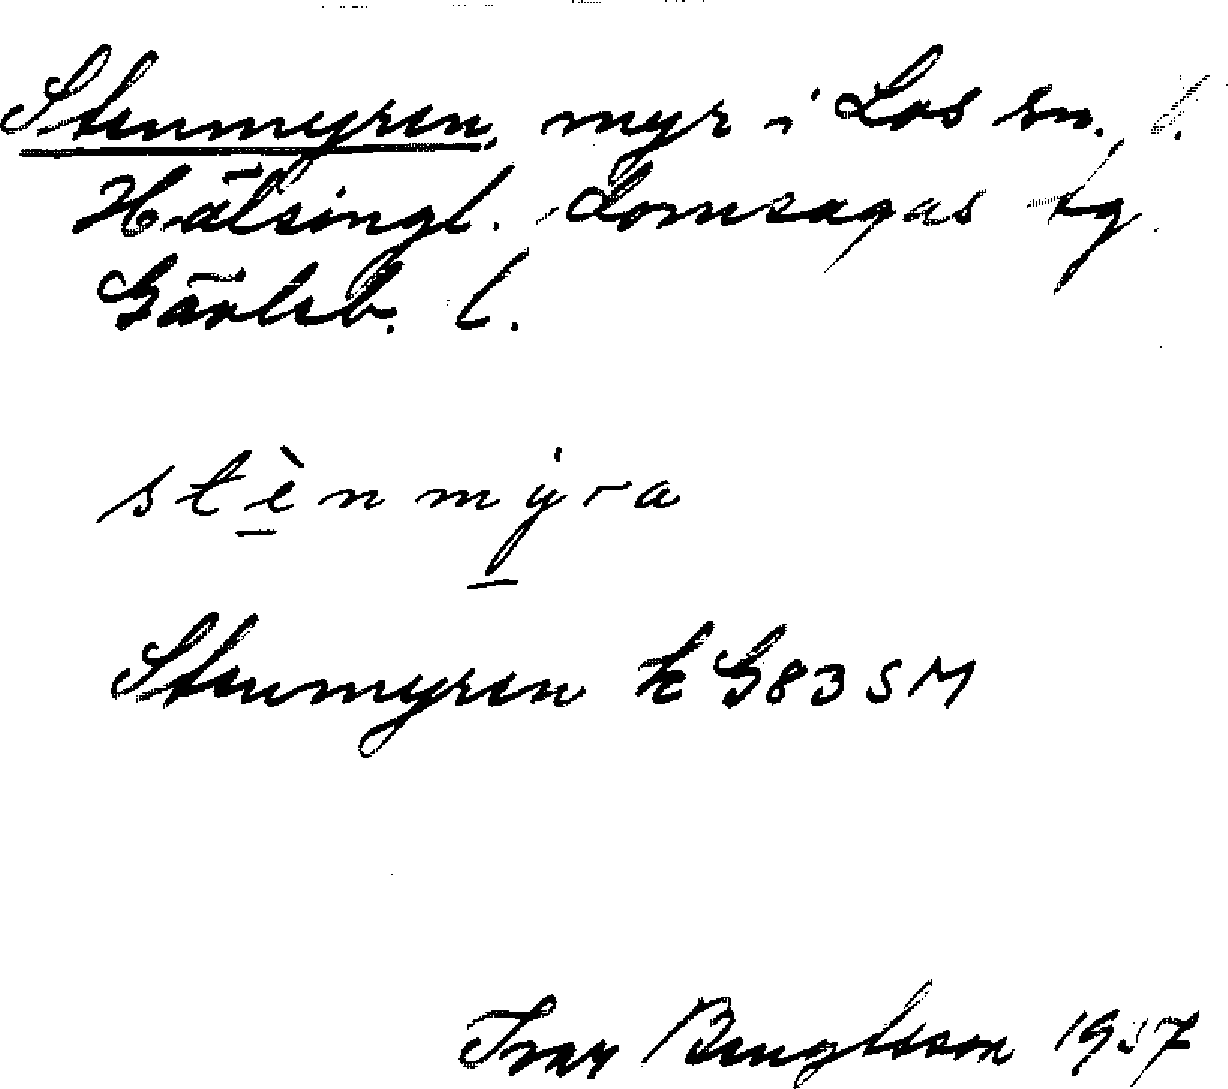 Stenmyren, myr i Los sn. V.
Hälsingl. Domsagas tg
Gävleb. l.
stènmyra
Stenmyren E G 83 SM
Ivar Bengtsson 1937